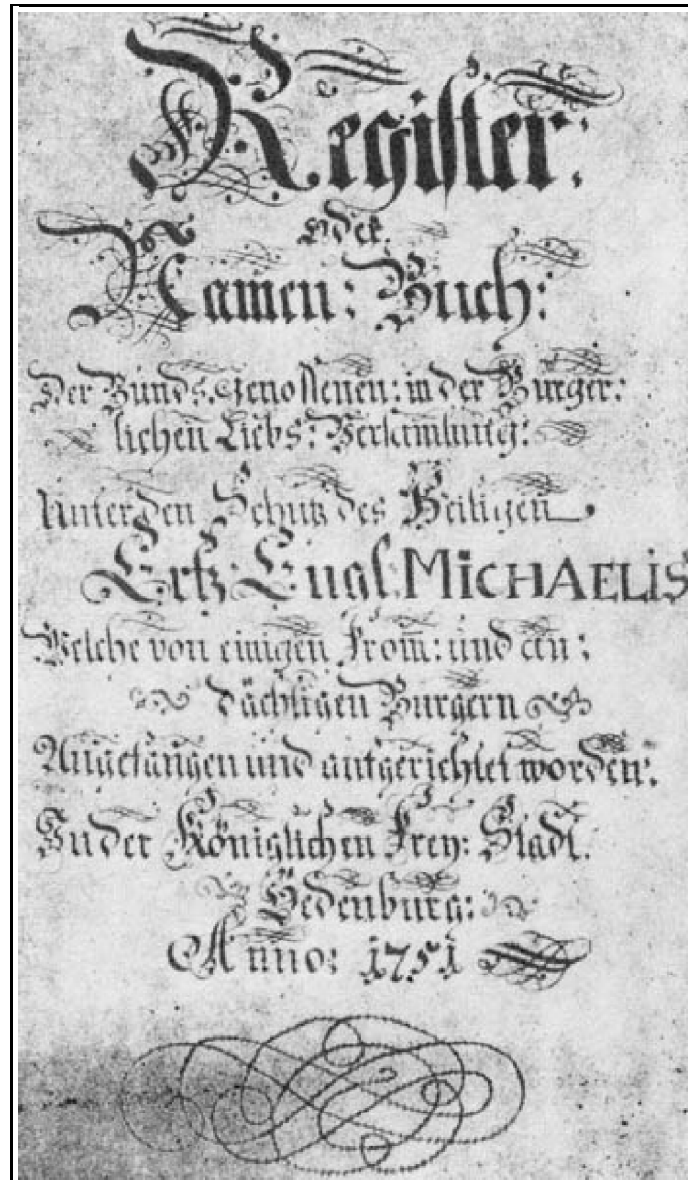 Register:
Oder
Namen: Buch:
Der Bunds. Genossenen: in der Burger:
lichen Liebs: Versamlung:
Unter den Schutz des Heiligen
Ertz: Engl: MiCHAELIS
Welche von einigen From̄: und an:
dächtigen Burgern
Angefangen und aufgerichtet worden.
In der Königlichen Frey: Stadt.
Oedenburg:
Anno: 1751